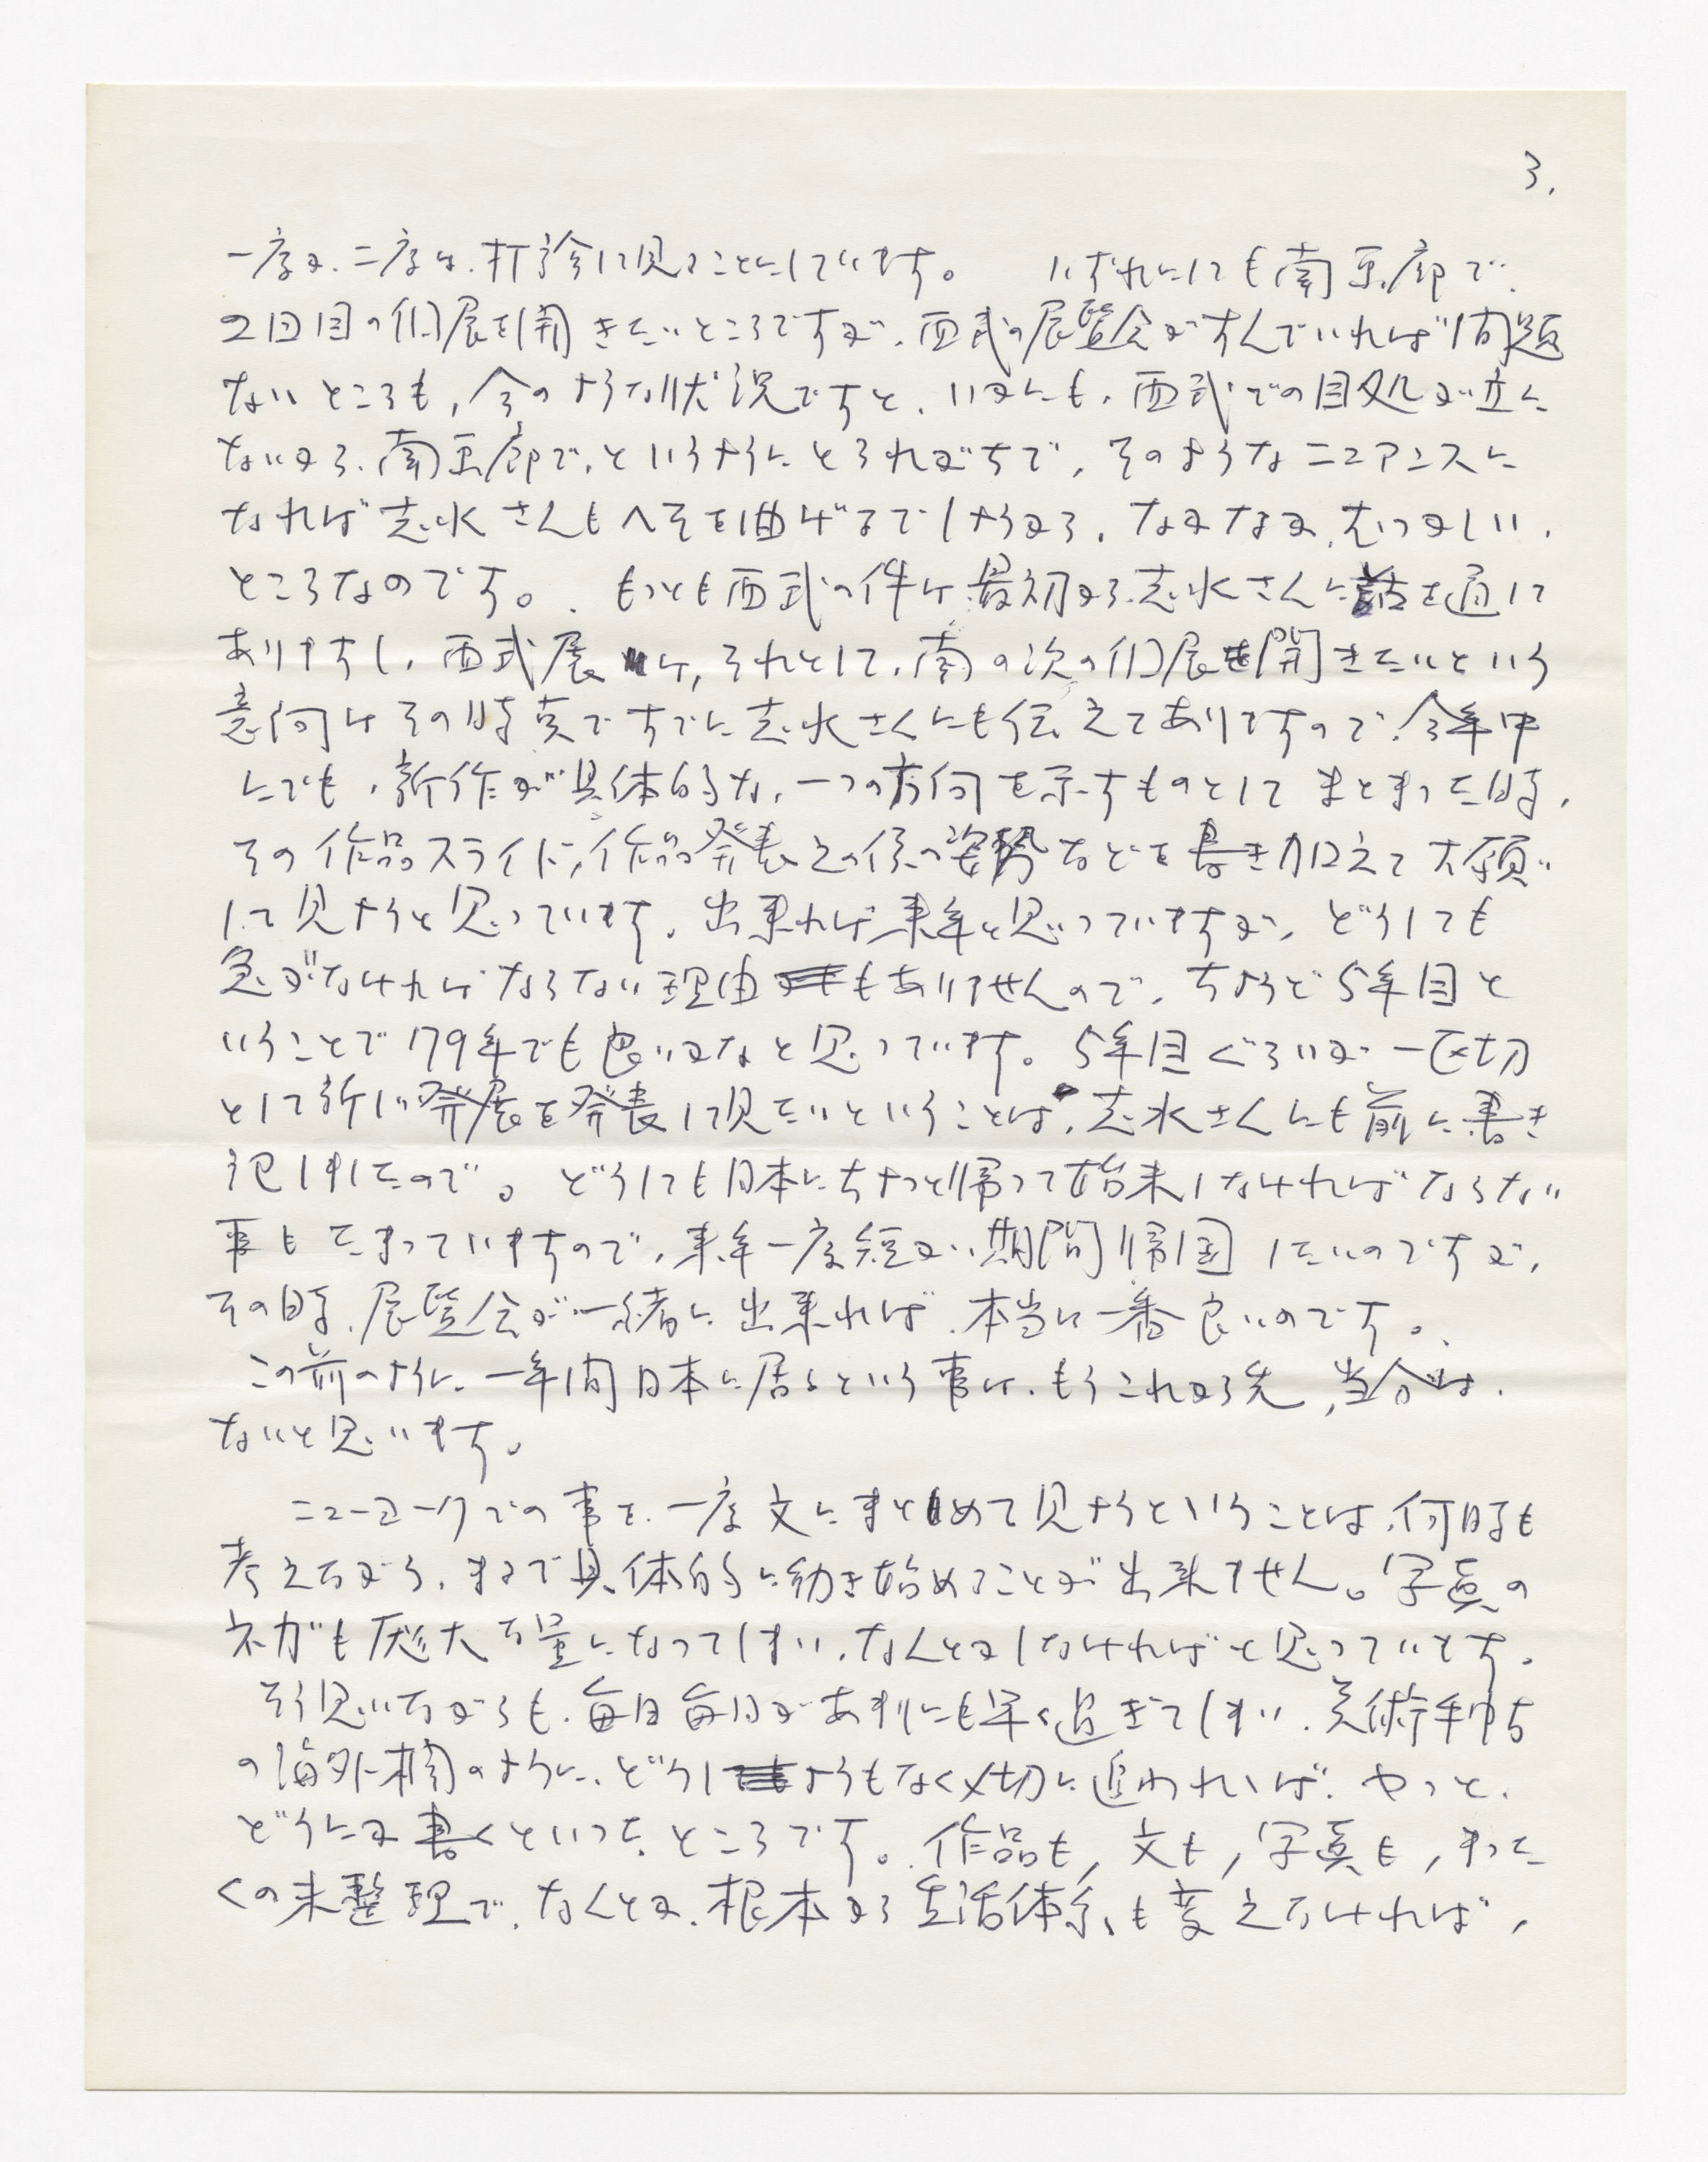 3.
一度か、二度は、打診して見ることにしています。 いずれにしても南画廊で、
2回目の個展を開きたいところですが、西武の展覧会がすんでいれば問題
ないところも、今のような状況ですと、いかにも、西武での目処が立た
ないから、南画廊で、というようにとられがちで、そのようなニュアンスに
なれば志水さんもへそを曲げるでしょうから、なかなか、むつかしい、
ところなのです。もっとも西武の件は最初から志水さんに話を通して
ありますし、西武展は、それとして、南の次の個展を開きたいという
意向はその時点ですでに志水さんにも伝えてありますので、今年中
にでも、新作が具体的な、一つの方向を示すものとしてまとまった時、
その作品スライド、作品発表との係の姿勢などを書き加えてお願い
して見ようと思っています。出来れば来年と思っていますが、どうしても
急がなければならない理由もありませんので、ちょうど5年目と
いうことで'79年でも良いかなと思っています。5年目ぐらいが一区切
として新しい発展を発表して見たいということは、志水さんにも前に書き
記しましたので。どうしても日本にちょっと帰って始末しなければならない
事もたまっていますので、来年一度短かい期間帰国したいのですが、
その時、展覧会が一緒に出来れば、本当に一番良いのです。
この前のように、一年間日本に居るという事は、もうこれから先、当分は、
ないと思います。
ニューヨークでの事を、一度文にまとめて見ようということは、何時も
考えながら、まるで具体的に動き始めることが出来ません。写真の
ネガも厖大な量になってしまい、なんとかしなければと思っています。
そう思いながらも、毎日毎日があまりにも早く過ぎてしまい、美術手帖
の海外欄のように、どうしようもなく〆切に追われれば、やっと、
どうにか書くといった、ところです。作品も、文も、写真も、まった
くの未整理で、なんとか、根本から生活体系も変えなければ、